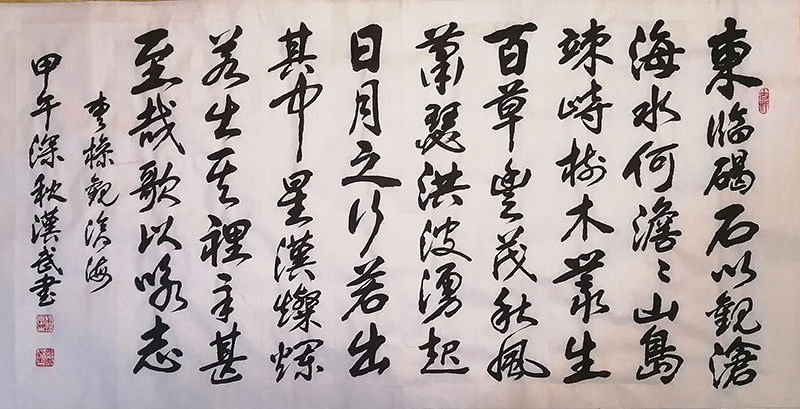 東臨碣石以觀滄
海水何澹〻山島
竦峙樹木叢生
百草豐茂秋風
蕭瑟洪波湧起
日月之行若出
其中星漢燦爛
若出其裡幸甚
至哉歌以咏志
曹操觀滄海
甲午深秋漢武書